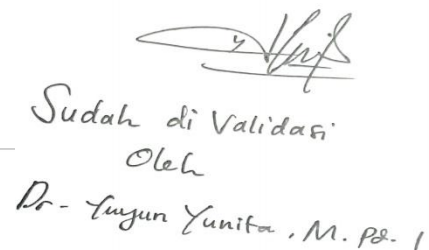 Sudah di Validasi
Oleh
Dr. Yuyun Yunita, M. Pd. I